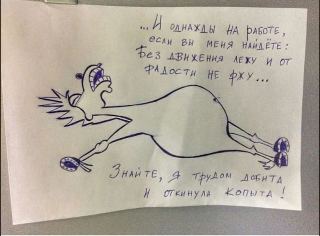 ...И ОДНАЖДЫ НА РАБОТЕ,
ЕСЛИ ВЫ МЕНЯ НАЙДЁТЕ:
БЕЗ ДВИЖЕНИЯ ЛЕЖУ И ОТ
РАДОСТИ НЕ РЖУ...
ЗНАЙТЕ, Я ТРУДОМ ДОБИТА
И ОТКИНУЛА КОПЫТА!